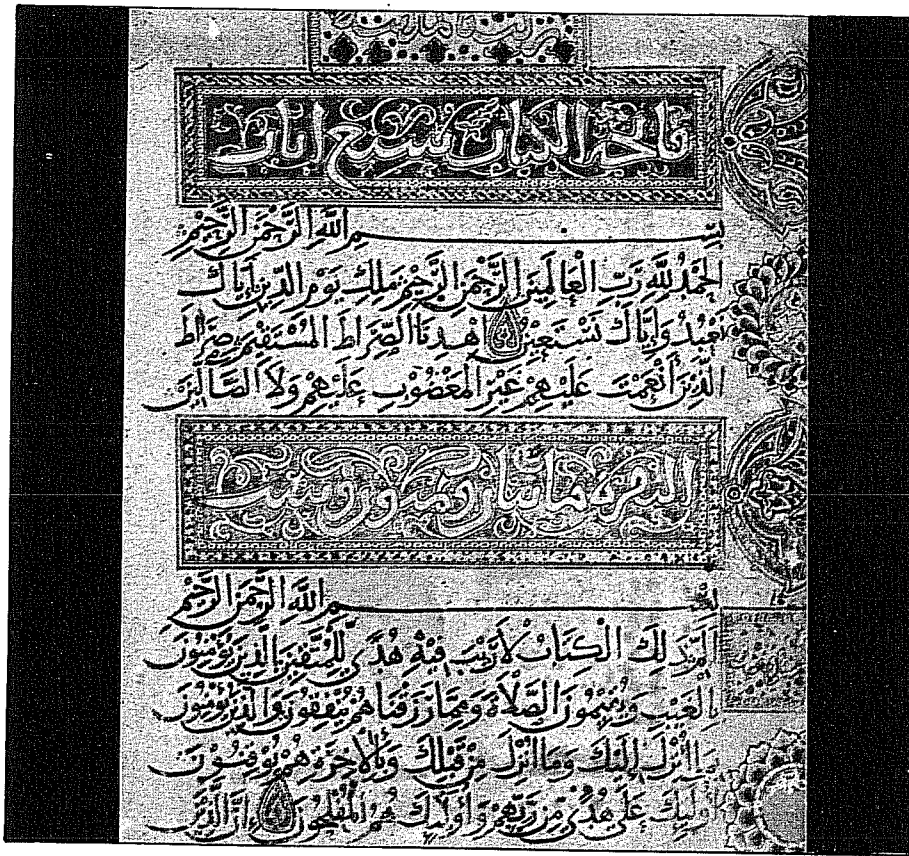 فاتحة الكتاب سبع ايات
بِسْمِ اللَّهِ الرَّحْمَنِ الرَّحِيْمِ
الْحَمْدُ لِلَّهِ رَبِّ الْعَالَمِيْنَ الرَّحْمَنِ الرَّحِيْمِ مَلِكِ يَوْمِ الدِّيْنِ إِيَّاكَ
نَعْبُدُ وَإِيَّاكَ نَسْتَعِيْنُ اهْدِنَا الصِّرَاطَ الْمُسْتَقِيْمَ صِرَاطَ
الَّذِيْنَ أَنْعَمْتَ عَلَيْهِمْ غَيْرِ الْمَغْضُوْبِ عَلَيْهِمْ وَلَا الضَّالِّيْنَ
البقره مايتان وثمنون وست
بِسْمِ اللَّهِ الرَّحْمَنِ الرَّحِيْمِ
الٓمٓ ذَلِكَ الْكِتَابُ لَا رَيْبَ فِيْهِ هُدًى لِلْمُتَّقِيْنَ الَّذِيْنَ يُؤْمِنُوْنَ
بِالْغَيْبِ وَيُقِيْمُوْنَ الصَّلَاةَ وَمِمَّا رَزَقْنَاهُمْ يُنْفِقُوْنَ وَالَّذِيْنَ يُؤْمِنُوْنَ
بِمَا أُنْزِلَ إِلَيْكَ وَمَا أُنْزِلَ مِنْ قَبْلِكَ وَبِالْآخِرَةِ هُمْ يُوْقِنُوْنَ
أُولَئِكَ عَلَى هُدًى مِنْ رَبِّهِمْ وَأُولَئِكَ هُمُ الْمُفْلِحُوْنَ إِنَّ الَّذِيْنَ